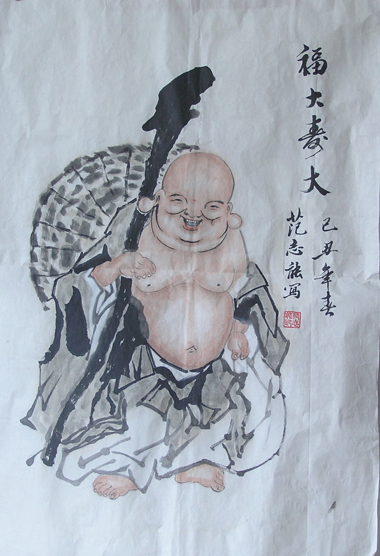 福大寿大
己丑年春
范志能写